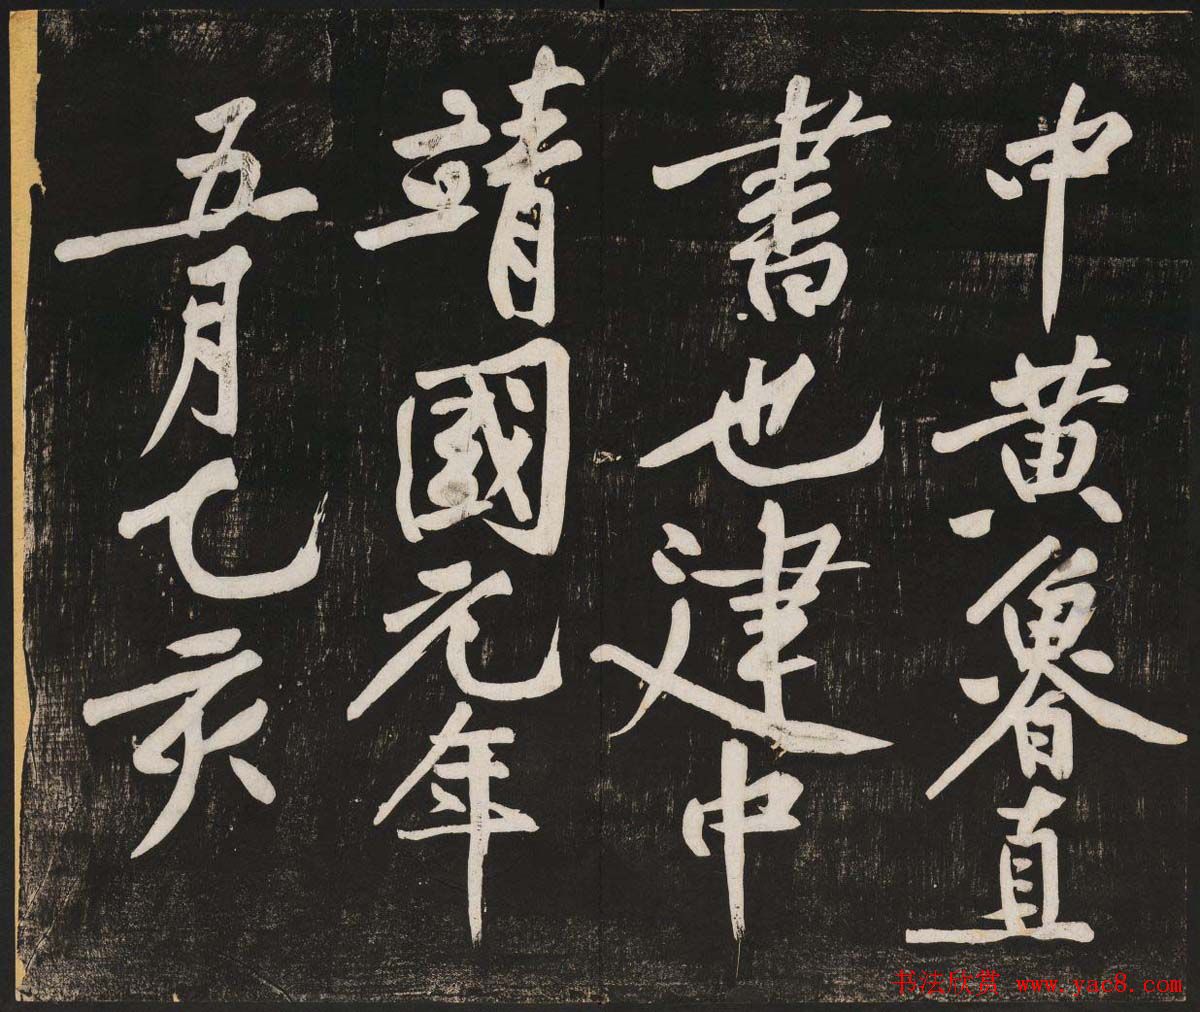 中黄魯直
書也建中
靖國元年
五月乙亥
书法欣赏 www.yac8.com